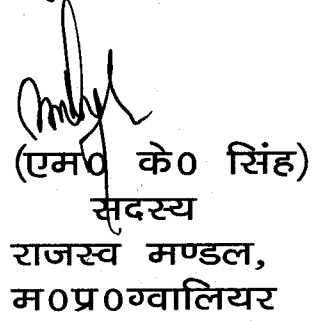 (एम0 के0 सिंह)
सदस्य
राजस्व मण्डल,
म0प्र0ग्वालियर